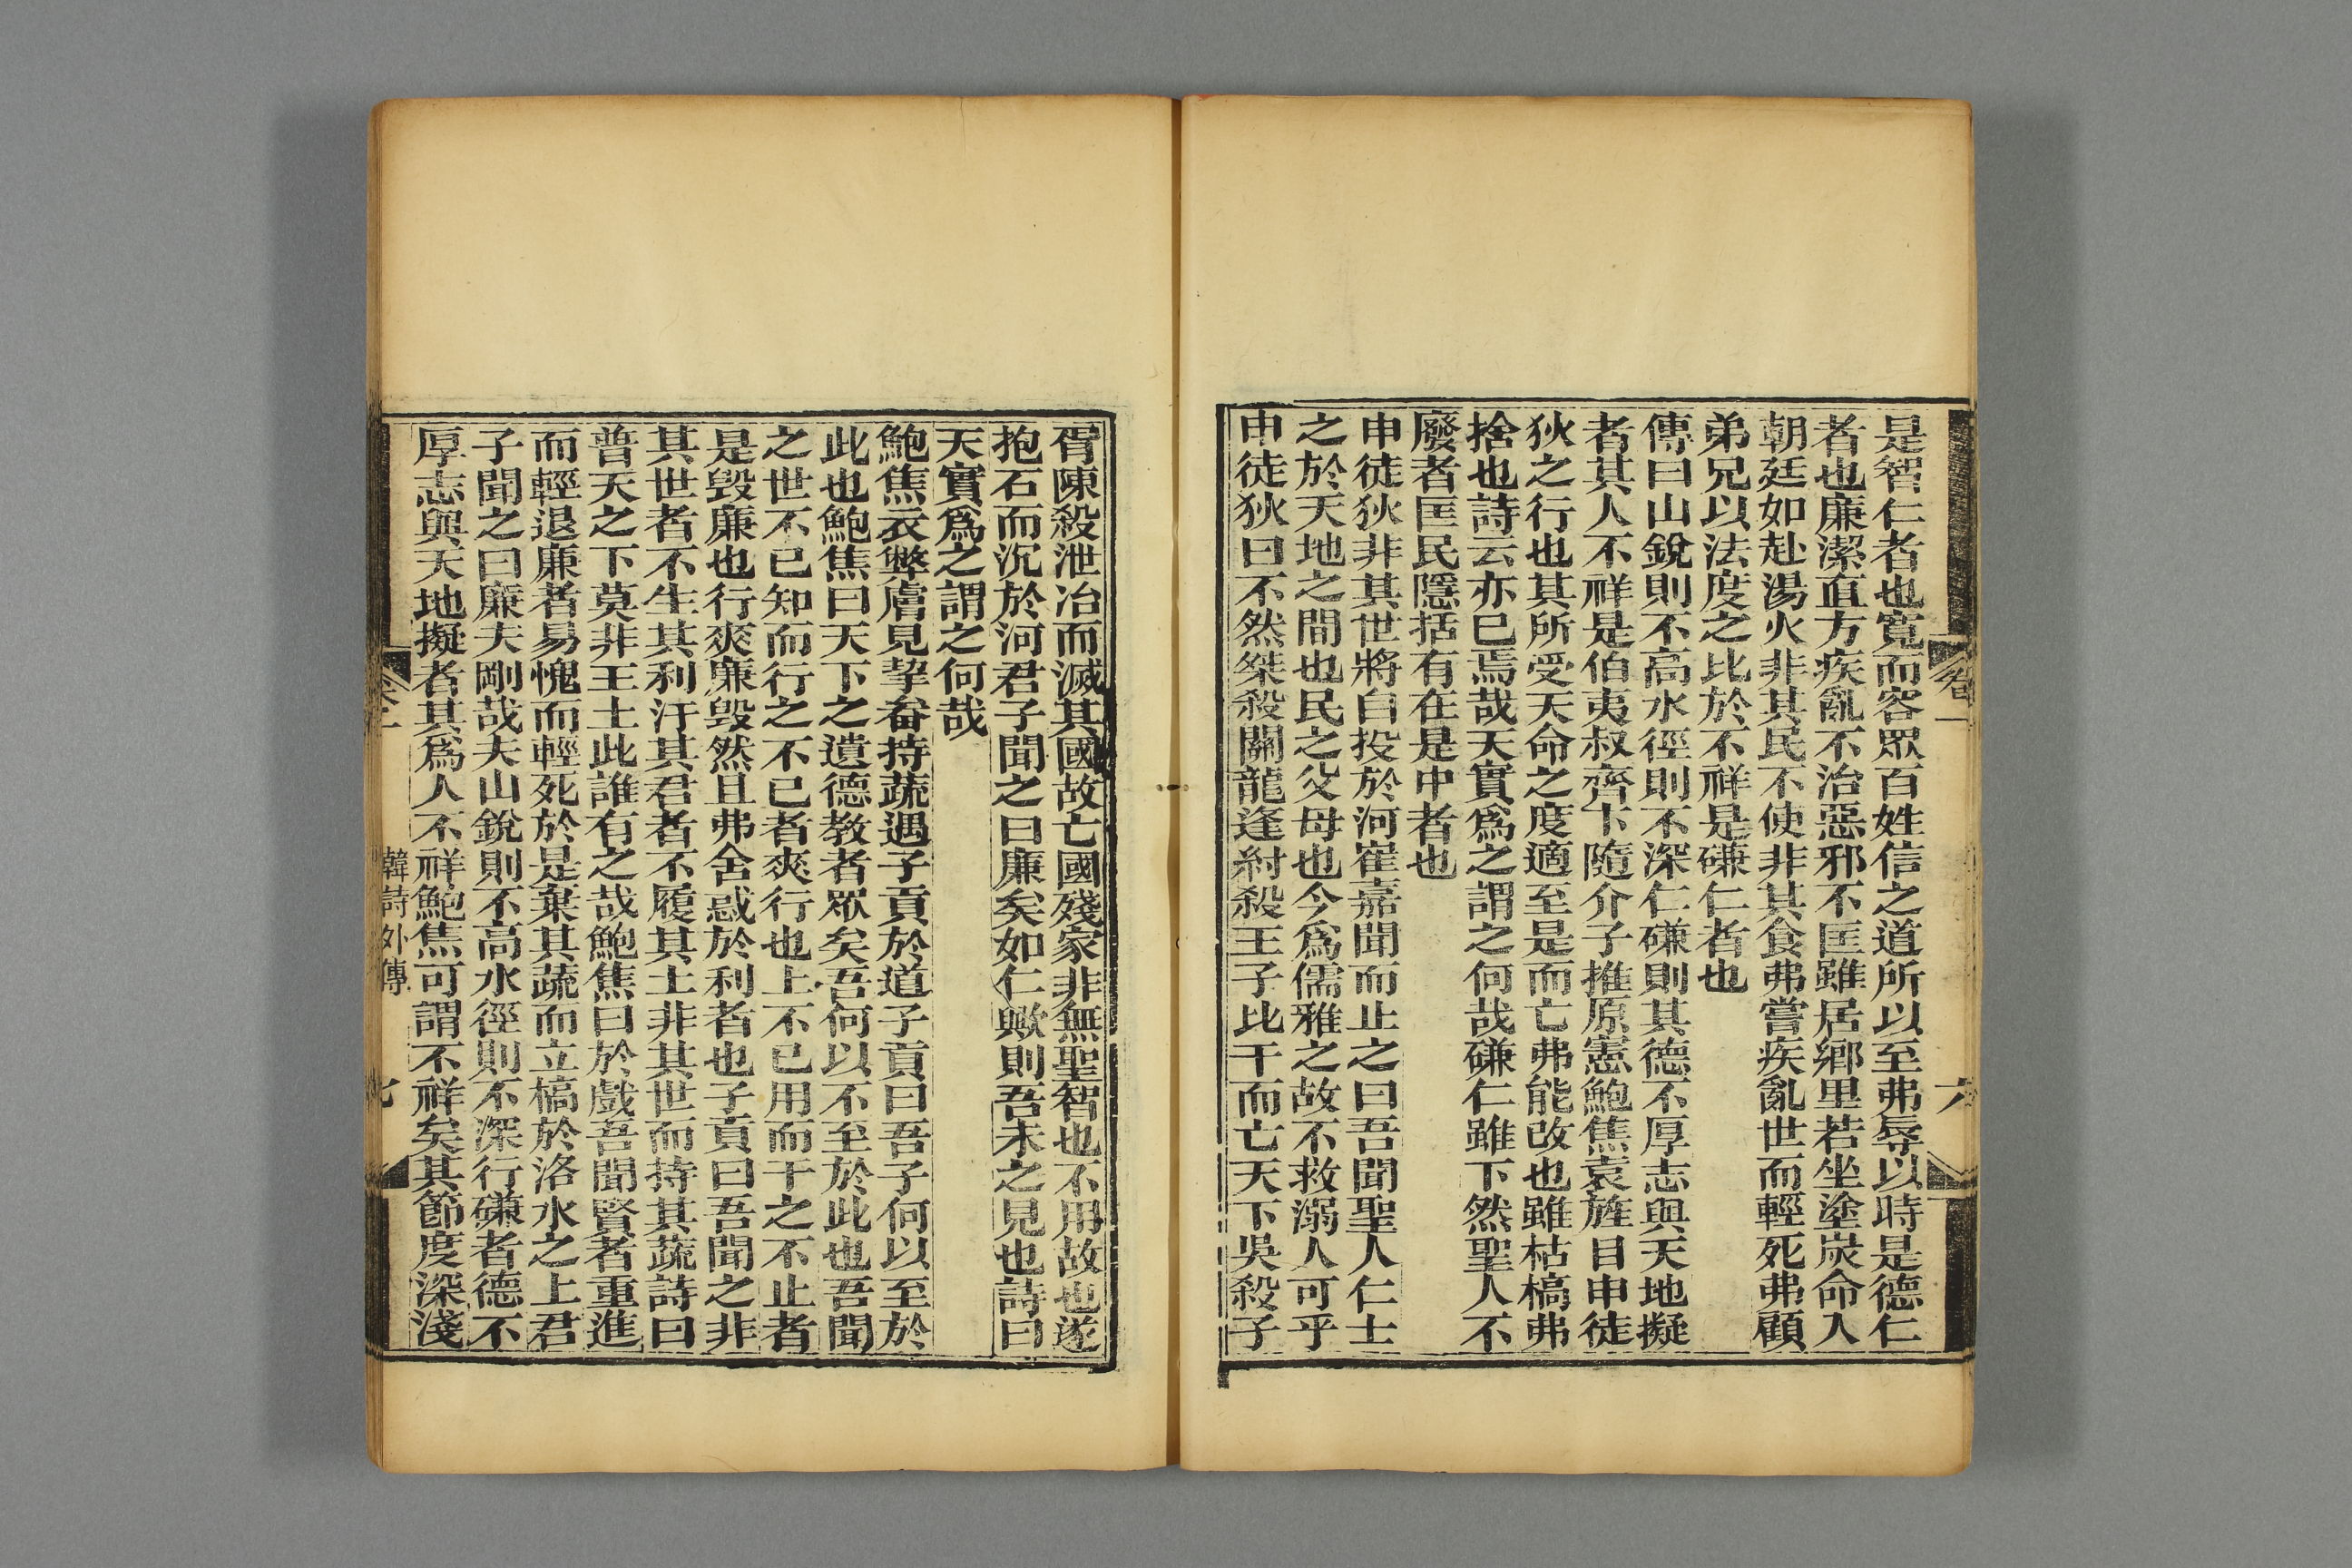 是智仁者也寬而容眾百姓信之道所以至弗辱以時是德仁
者也廉潔直方疾亂不治惡邪不匡雖居鄉里若坐塗炭命入
朝廷如赴湯火非其民不使非其食弗嘗疾亂世而輕死弗顧
弟兄以法度之比於不祥是磏仁者也
傳曰山銳則不高水徑則不深仁磏則其德不厚志與天地擬
者其人不祥是伯夷叔齊卞隨介子推原憲鮑焦袁旌目申徒
狄之行也其所受天命之度適至是而亡弗能改也雖枯槁弗
捨也詩云亦已焉哉天實爲之謂之何哉磏仁雖下然聖人不
廢者匡民隱括有在是中者也
申徒狄非其世將自投於河崔嘉聞而止之曰吾聞聖人仁士
之於天地之間也民之父母也今爲儒雅之故不救溺人可乎
申徒狄曰不然桀殺關龍逢紂殺王子比干而亡天下吳殺子
卷一
六
胥陳殺泄冶而滅其國故亡國殘家非無聖智也不用故也遂
抱石而沉於河君子聞之曰廉矣如仁歟則吾未之見也詩曰
天實爲之謂之何哉
鮑焦衣弊膚見挈畚持蔬遇子貢於道子貢曰吾子何以至於
此也鮑焦曰天下之遺德教者眾矣吾何以不至於此也吾聞
之世不已知而行之不已者爽行也上不已用而干之不止者
是毀廉也行爽廉毀然且弗舍惑於利者也子貢曰吾聞之非
其世者不生其利汙其君者不履其土非其世而持其蔬詩曰
普天之下莫非王土此誰有之哉鮑焦曰於戲吾聞賢者重進
而輕退廉者易愧而輕死於是棄其蔬而立槁於洛水之上君
子聞之曰廉夫剛哉夫山銳則不高水徑則不深行磏者德不
厚志與天地擬者其爲人不祥鮑焦可謂不祥矣其節度深淺
韓詩外傳